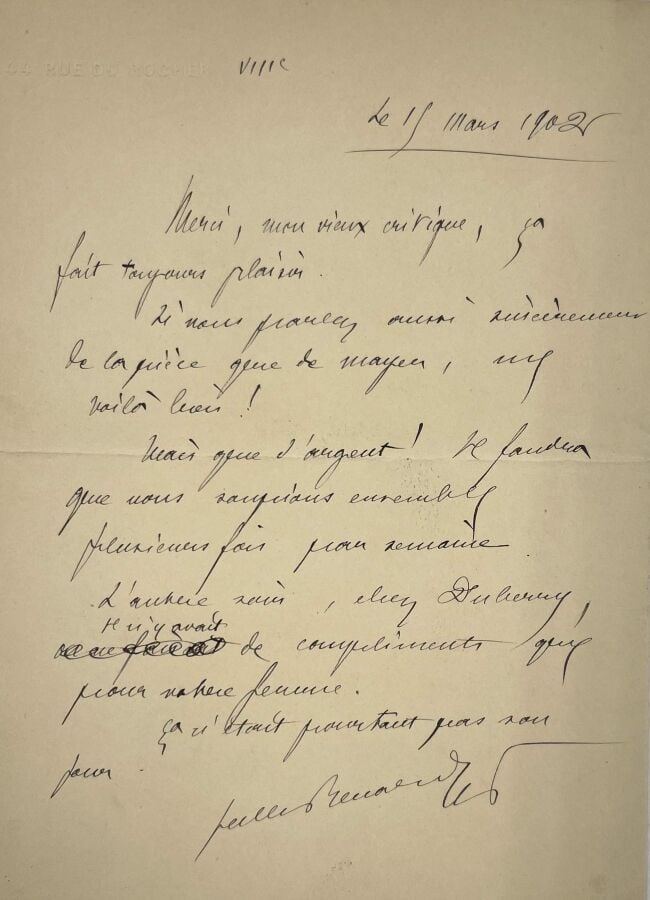 44 RUE DU ROCHER
VIIIe
Le 15 mars 1902
Merci, mon vieux critique, ça
fait toujours plaisir.
Si vous parlez aussi sincèrement
de la pièce que de mayer,
voilà bien !
Mais que d'argent ! Il faudra
que nous soupions ensemble
plusieurs fois par semaine
L'autre soir, chez Duberry,
il n'y avait
de compliments que
pour votre femme.
ça n'était pourtant pas son
jour.
Jules Renard